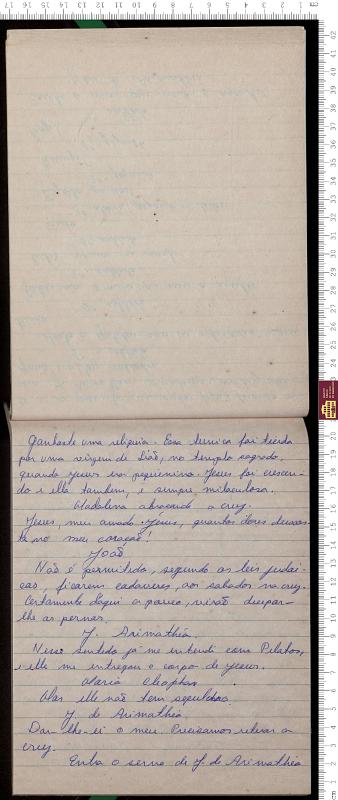 Ganhaste uma reliquia. Essa tunica foi tecida
por uma virgem de Sião, no templo sagrado,
quando Jesus era pequenino. Jesus foi crescen-
do e ella tambem, é sempre milachosa.
Madalena abraçando a cruz.
Jesus, meu amado Jesus, quantas dores deixas-
te no meu coração!
João
Não é permitido, segundo as leis judai-
cas, ficarem cadaveres, aos sabados na cruz.
Certamente daqui a pouco, virão decepar-
lhe as pernas.
J. Arimathéa.
Nesse sentido já me entendi com Pilatos,
e elle me entregou o corpo de Jesus.
Maria Cleophas
Mas elle não tem sepulchro.
J. de Arimathéa.
Dar-lhe-ei o meu. Precisamos retirar a
cruz.
Entra o servo de J. de Arimathéa